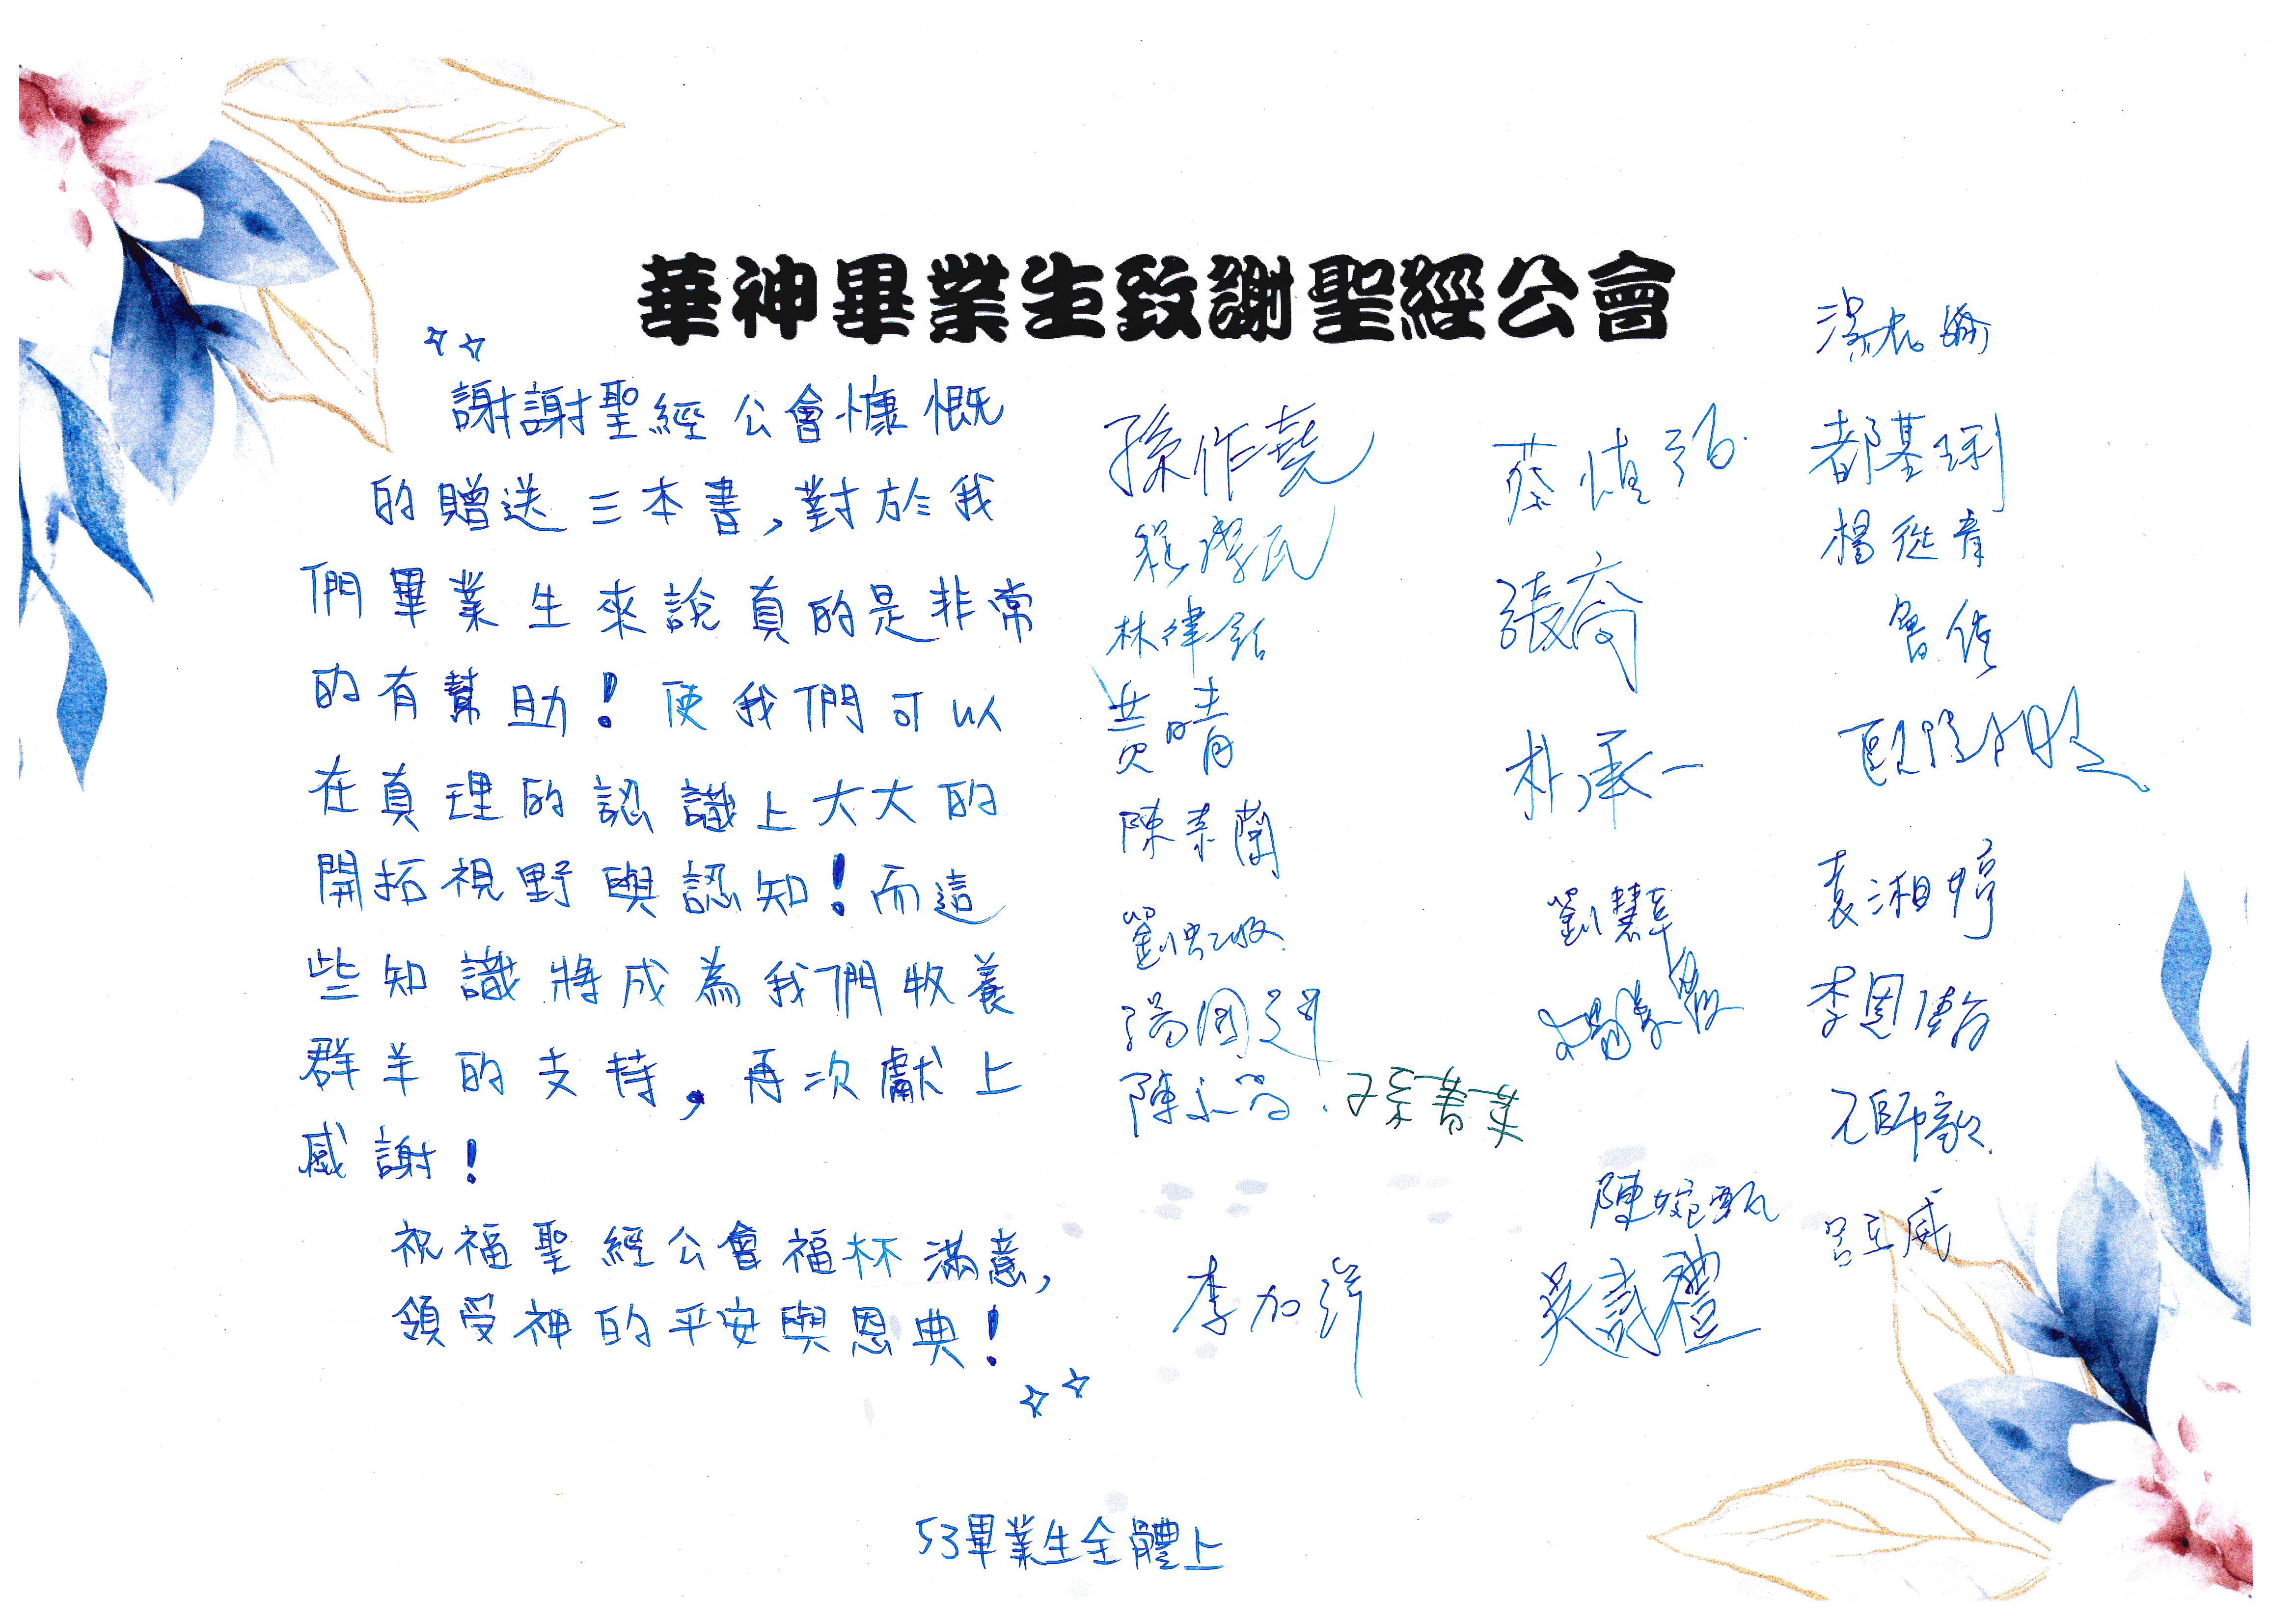 華神畢業生致謝聖經公會
謝謝聖經公會慷慨
的贈送三本書,對於我
們畢業生來說真的是非常
的有幫助!使我們可以
在真理的認識上大大的
開拓視野與認知!而這
些知識將成為我們牧養
群羊的支持,再次獻上
感謝!
祝福聖經公會福杯滿意,
領受神的平安與恩典!
53畢業生全體上
孫作堯
黃晴
陳素蘭
孫菁菜
李加
蔡慎
張喬
朴承一
劉慧
陳婉甄
吳詩禮
都基琍
楊從育
袁湘婷
李恩